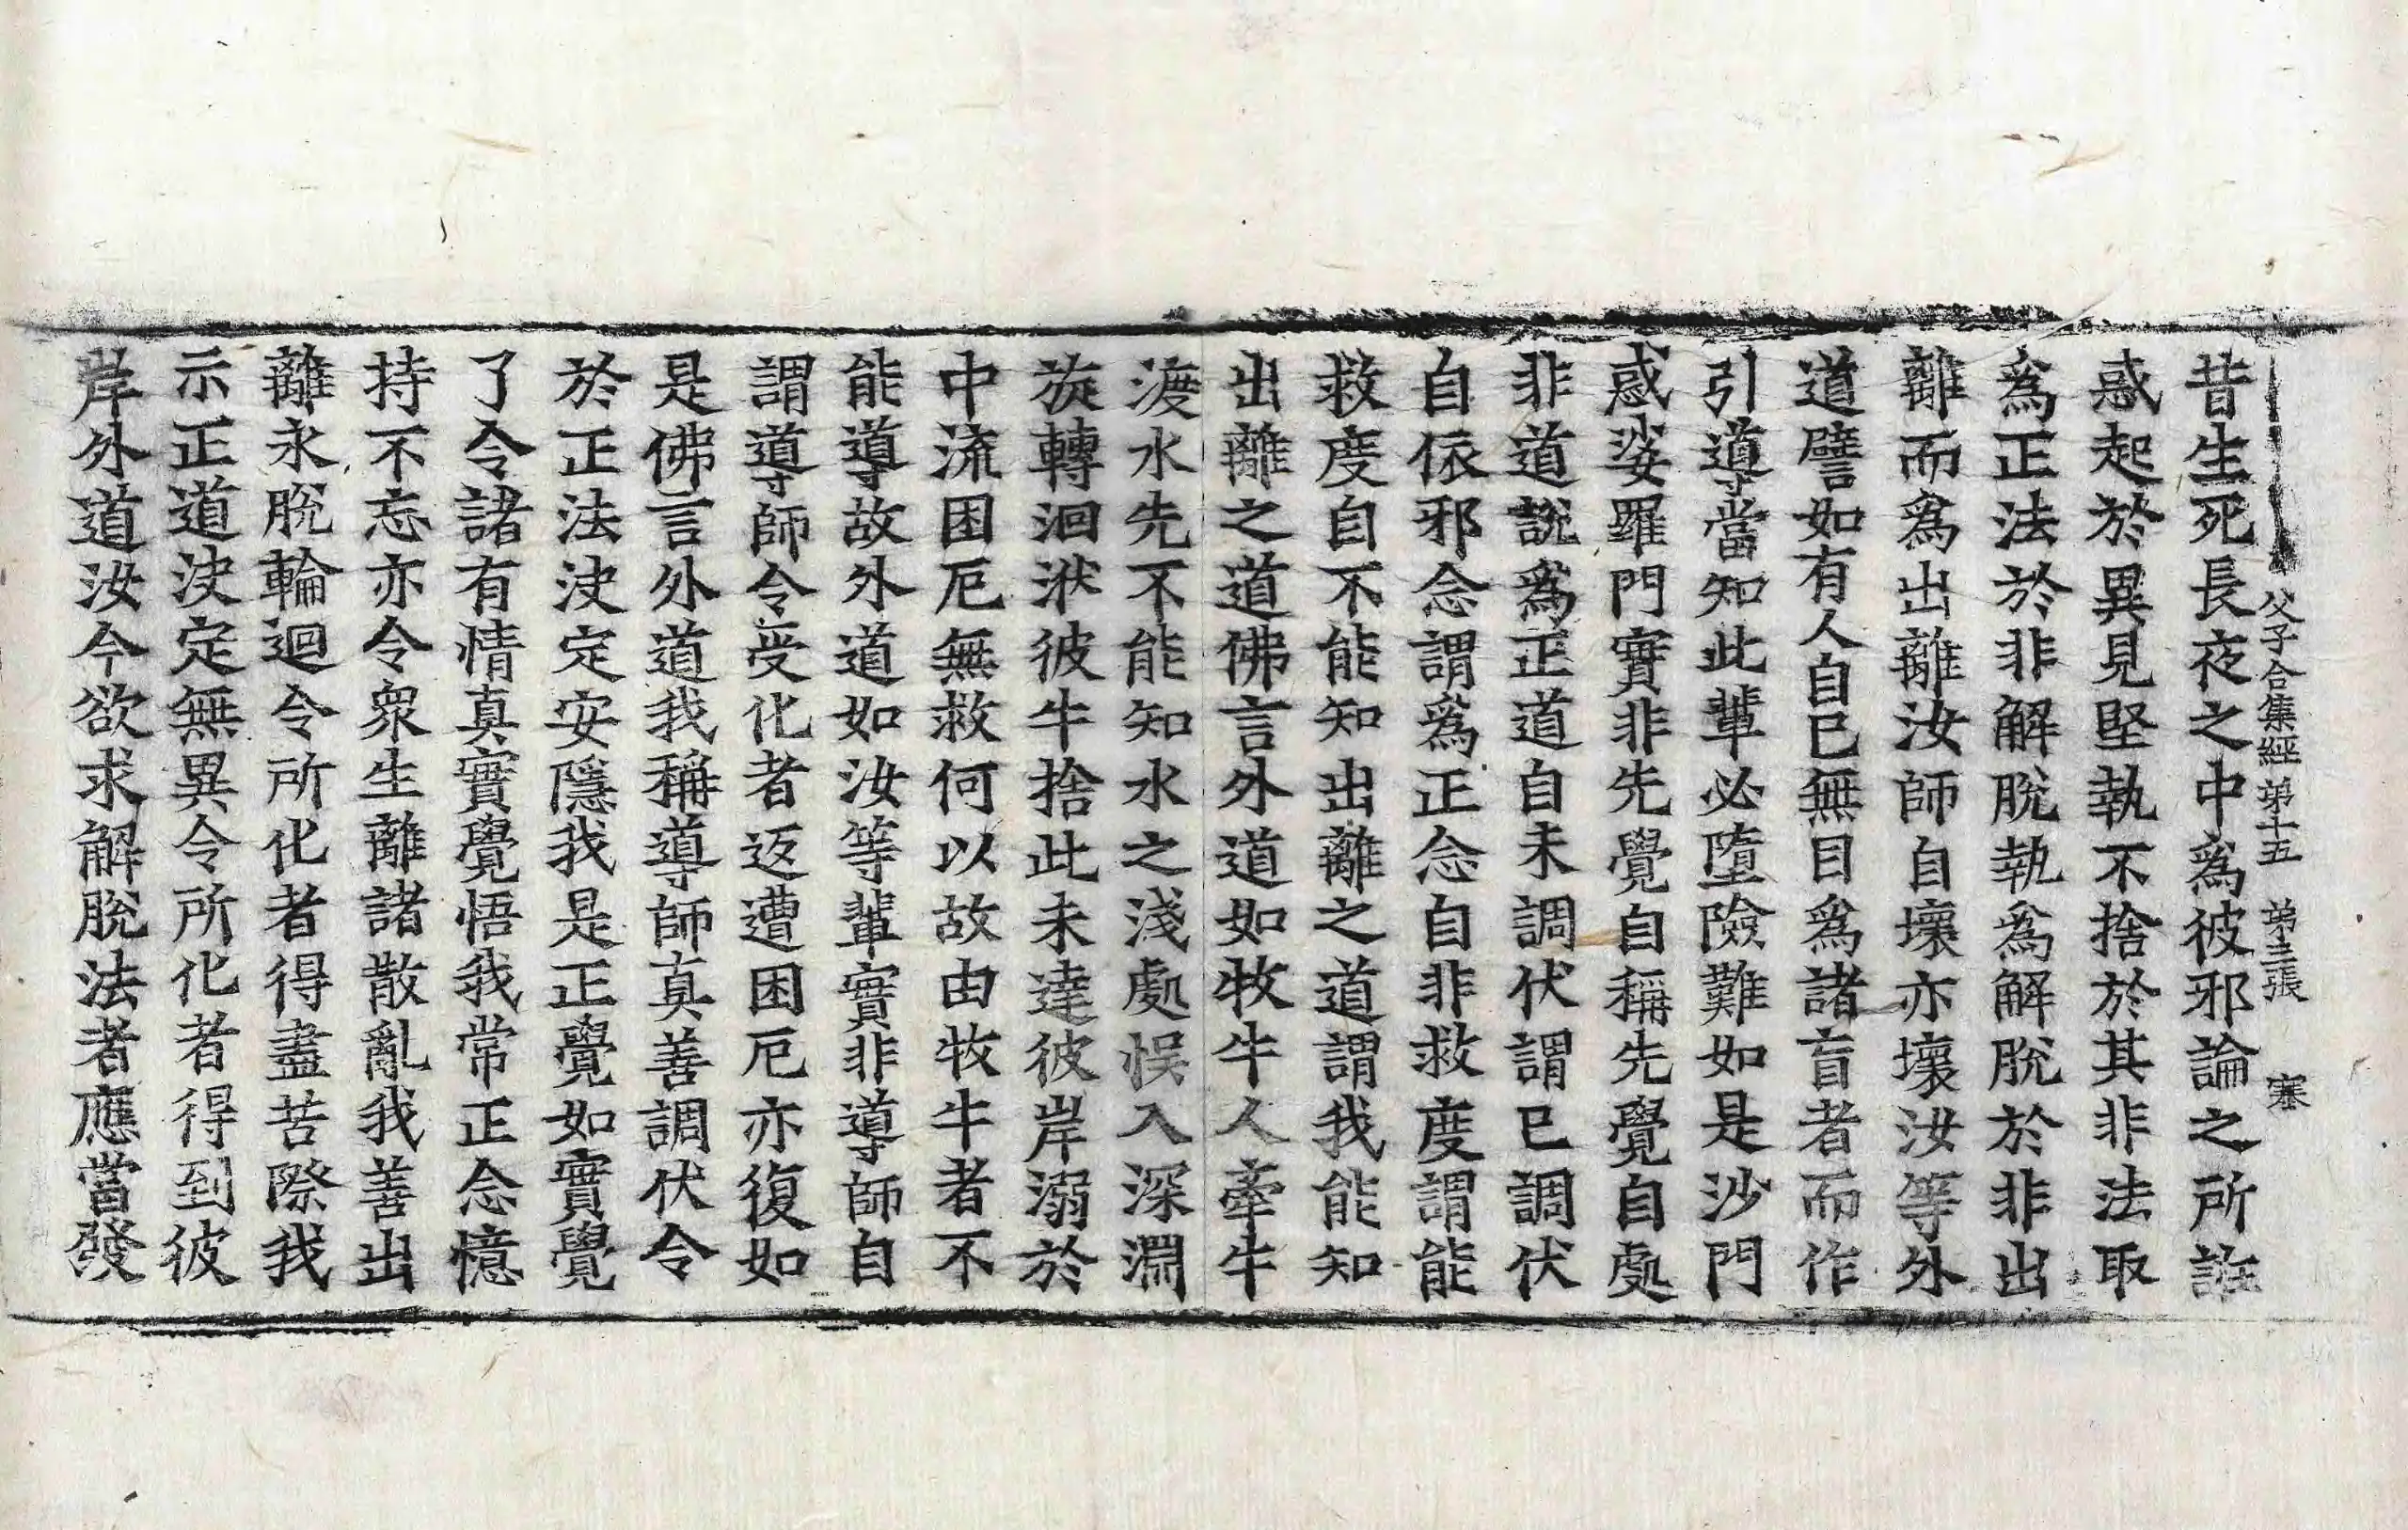 父子合集經第十五 第三張 寒
昔生死長夜之中爲彼邪論之所誑
惑起於異見堅執不捨於其非法取
爲正法於非解脫執爲解脫於非出
離而爲出離汝師自壞亦壞汝等外
道譬如有人自已無目爲諸盲者而作
引導當知此輩必墮險難如是沙門
惑娑羅門實非先覺自稱先覺自處
非道說爲正道自未調伏謂已調伏
自依邪念謂爲正念自非救度謂能
救度自不能知出離之道謂我能知
出離之道佛言外道如牧牛人牽牛
渡水先不能知水之淺處悞入深淵
旋轉洄洑彼牛捨此未達彼岸溺於
中流困厄無救何以故由牧牛者不
能導故外道如汝等輩實非導師自
謂導師令受化者返遭困厄亦復如
是佛言外道我稱導師真善調伏令
於正法決定安隱我是正覺如實覺
了令諸有情真實覺悟我常正念憶
持不忘亦令衆生離諸散亂我善出
離永脫輪迴令所化者得盡苦際我
示正道決定無異令所化者得到彼
岸外道汝今欲求解脫法者應當發